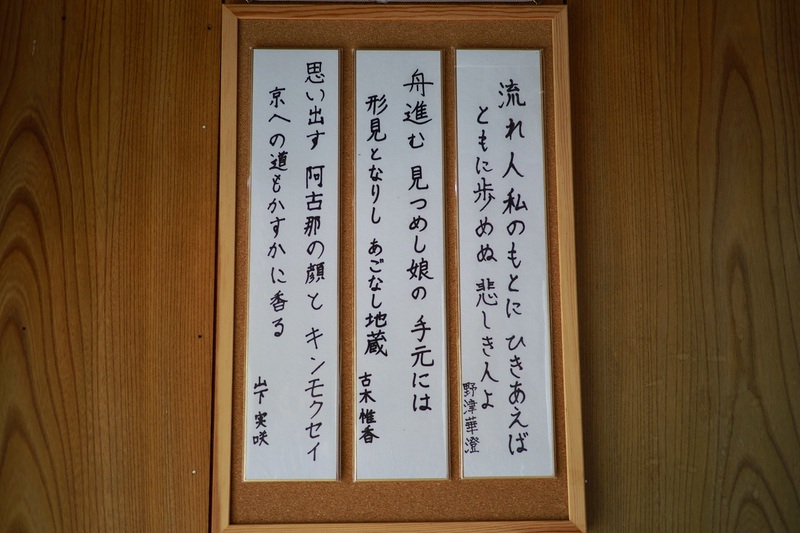 流れ人 私のもとに ひきあえば
ともに歩めぬ 悲しき人よ
野津華澄
舟進む 見つめし娘の 手元には
形見となりし あごなし地蔵
古木惟香
思い出す 阿古那の顔と キンモクセイ
京への道もかすかに香る
山下実咲